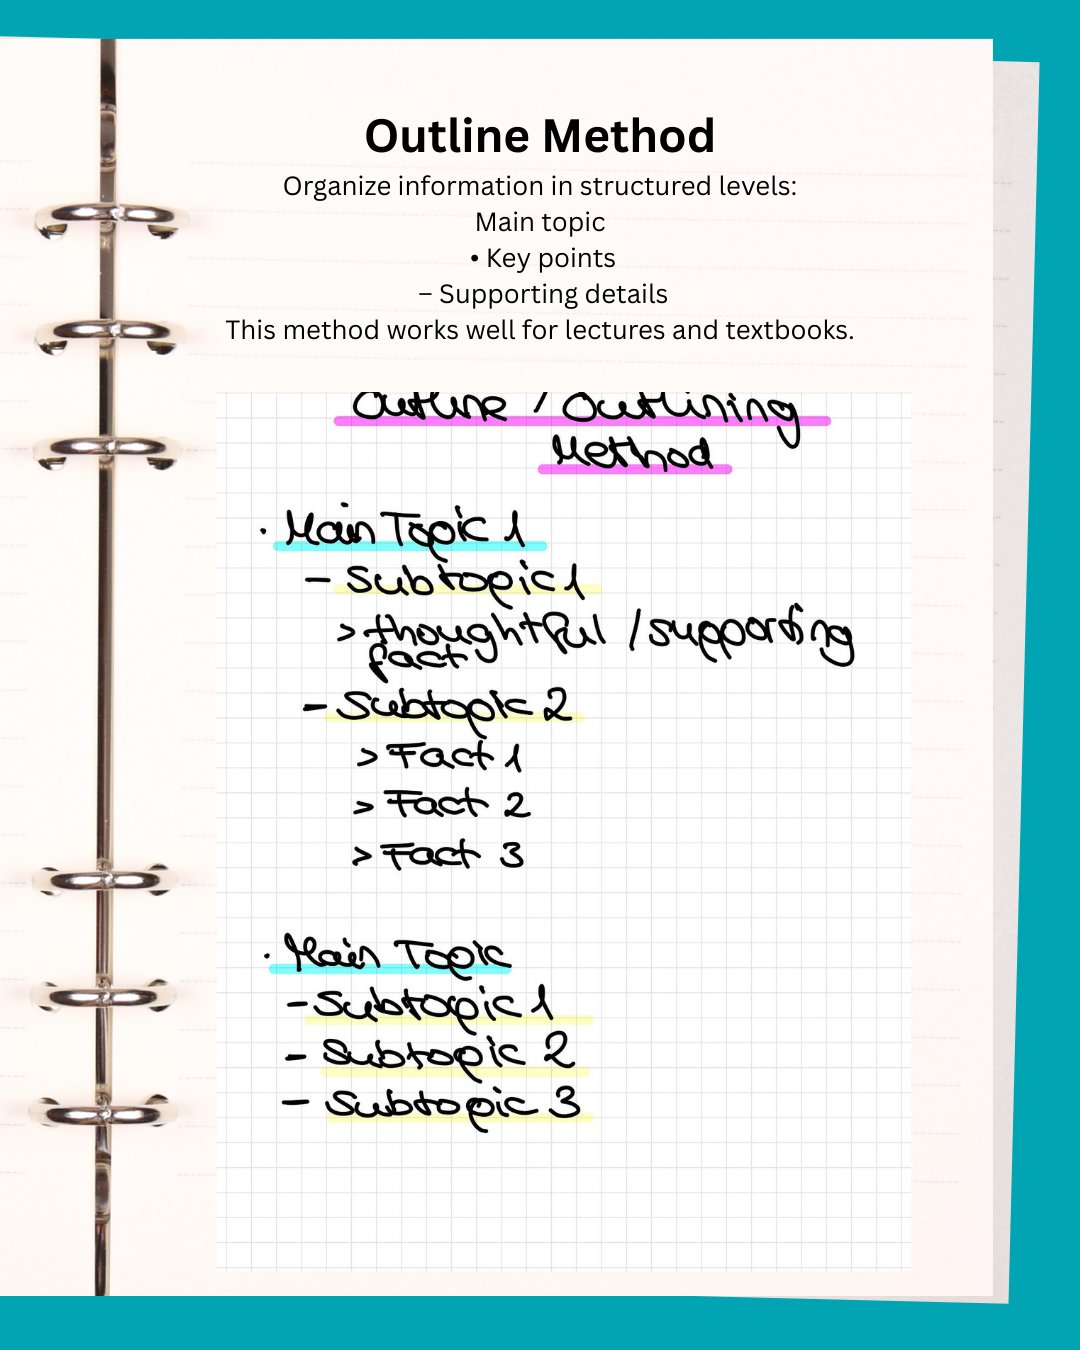 Outline Method
Organize information in structured levels:
Main topic
• Key points
– Supporting details
This method works well for lectures and textbooks.
Outline / Outlining
Method
· Main Topic 1
– Subtopic 1
> thoughtful / supporting
fact
– Subtopic 2
> Fact 1
> Fact 2
> Fact 3
· Main Topic
– Subtopic 1
– Subtopic 2
– Subtopic 3